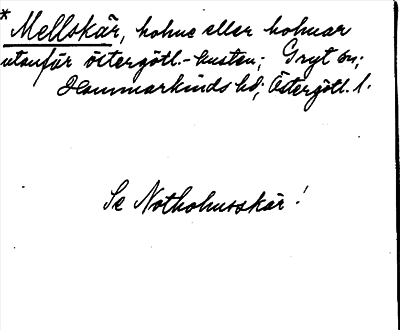 * Mellskär, holme eller holmar
utanför östergötl.-kusten; Gryt sn;
Hammarkinds hd; Östergötl. l.
Se Notholmsskär!